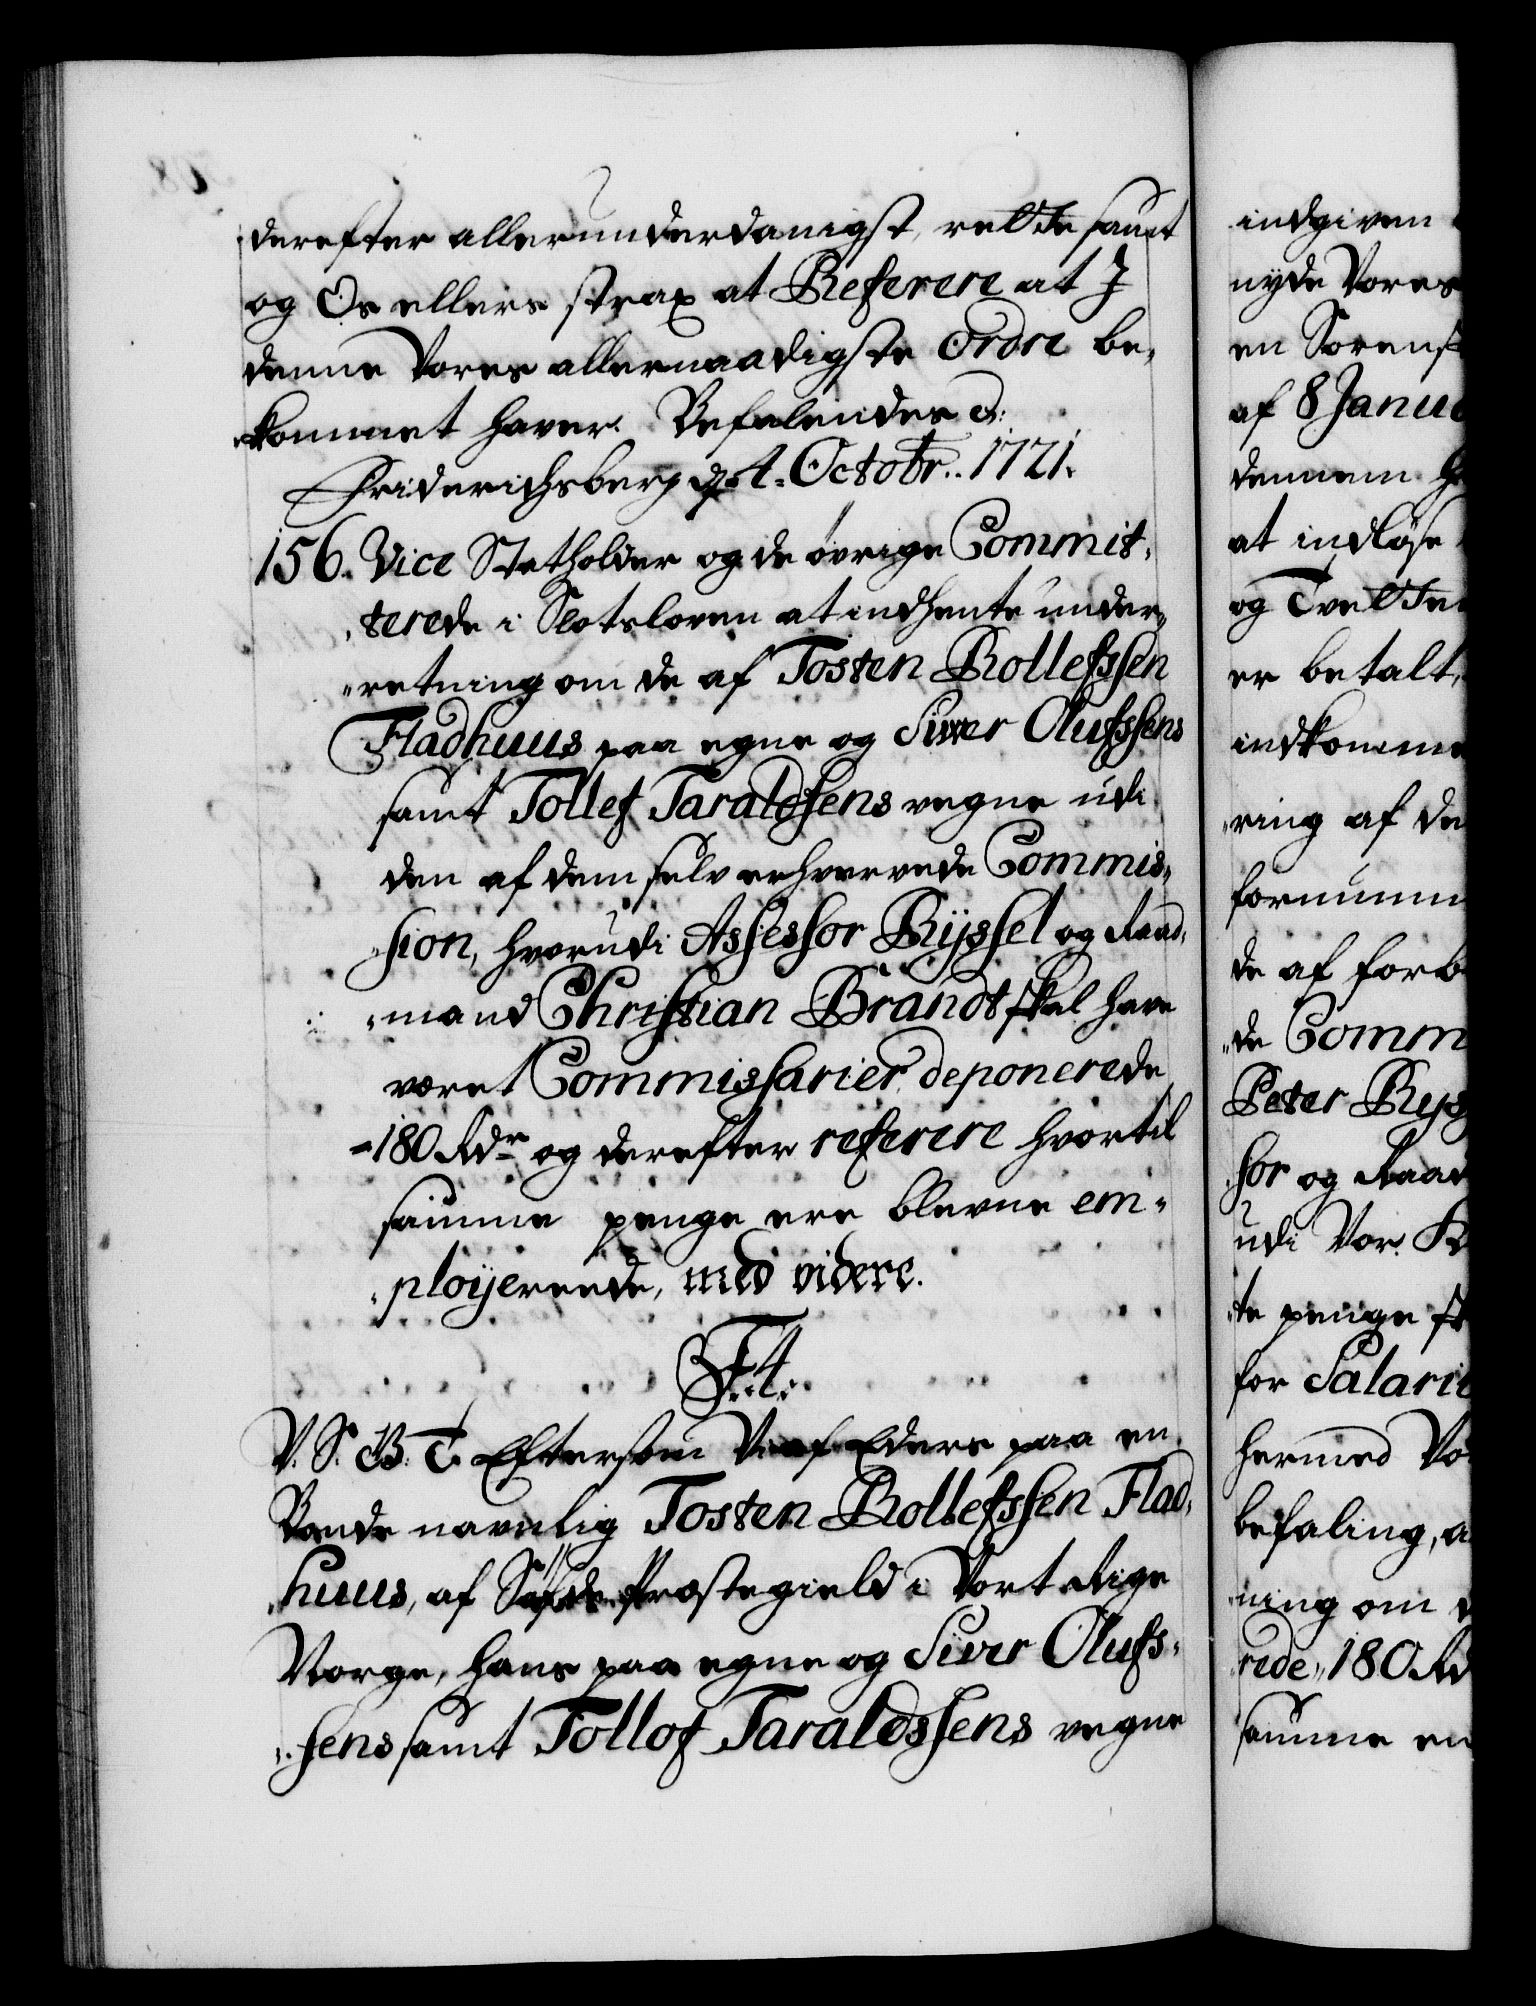 derefter allerunderdanigst, rette samt
og Os ellers strax at Referere at I
denne Vores allernaadigste Ordre be-
kommet haver. Befalendes d:
Friderichsberg d. 4. Octobr. 1721.
156. Vice Statholder og de øvrige Commit-
terede i Slotsloven at indhente under-
retning om de af Tosten Rollefssen
Fladhuus paa egne og Siver Olufssens
samt Tollef Taraldsens vegne udi
den af dem selv erhvervede Commis-
sion, hvorudi Assessor Ryssel og Raad-
mand Christian Brandt skal have
været Commissarier deponerede
180 Rdr og derefter referere hvortil
samme penge ere blevne em-
ployerede, med videre.
F. 4.
V. S. G. B. T. Eftersom Vi af Eders paa en
Bonde navnlig Tosten Rollefssen Flad-
huus, af Præstegield i Vort Rige
Norge, hans paa egne og Siver Olufs-
sens samt Tollof Taraldssens vegne
indgiven
nyde Vores
en Sorens
af 8 Janua
dennem
at indløse
og Tvelte
er betalt,
indkomme
ring af de
fornumm
de af forb
de Comm
Peter Rys
sor og Raad
udi Vor
te penge
for Salari
hermed Vo
befaling, a
ning om
rede 180 Rd
samme en